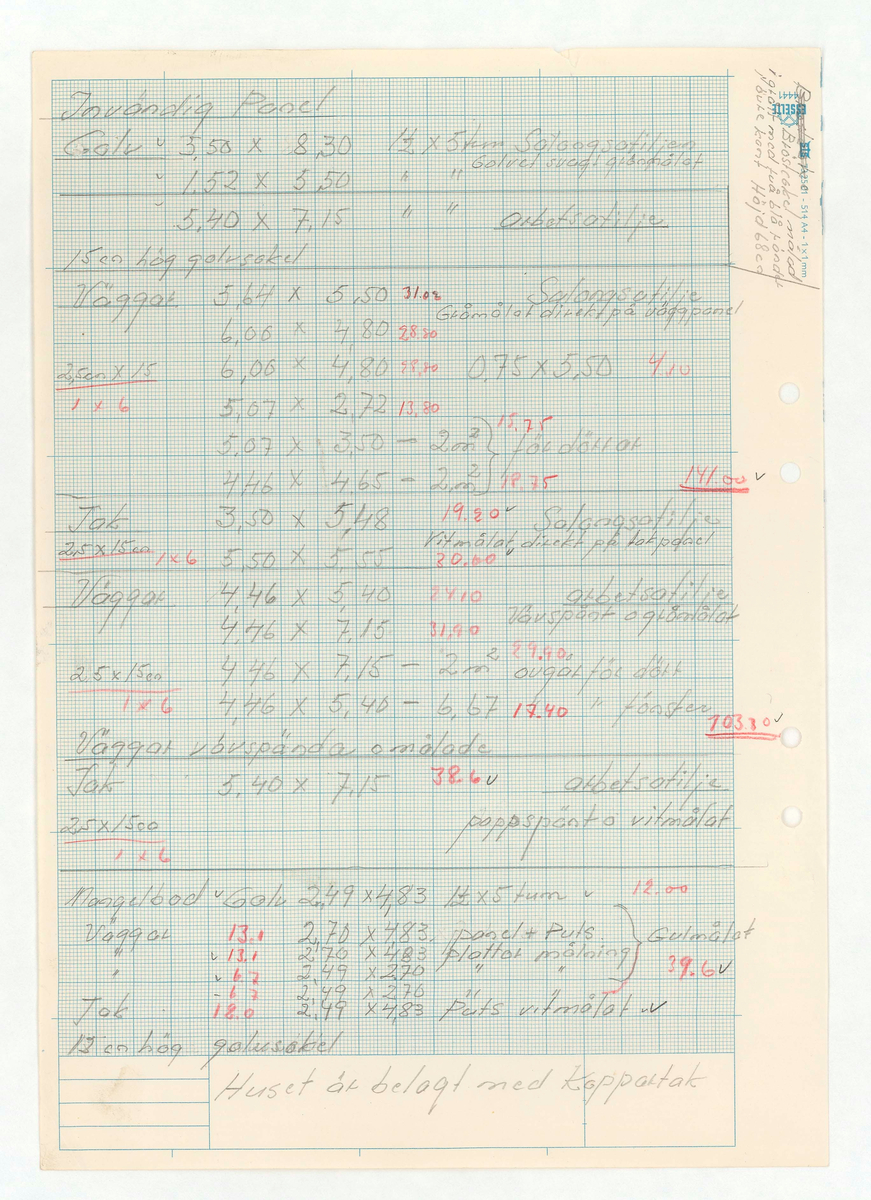 Invändig Panel
Golv 3,50 x 8,30 1½ x 5 tum Salongsatiljen
Golvet svagt gråmålat
1.52 x 5,50 " "
5.40 x 7,15 " " arbetsatilje
15 cm hög golvsokel
Väggar 5,64 x 5,50 31.02 Salongsatilje
Gråmålat direkt på väggpanel
6,06 x 4,80 28.80
2,5cm x 15 6,06 x 4,80 28.80 0.75 x 5,50 4,10
1 x 6 5,07 x 2,72 13,80
15.75
5,07 x 3,50 - 2m² för dörrar
4,46 x 4,65 - 2m² 18.75 141.00
Tak 3,50 x 5,48 19.20 Salongsatilje
Vitmålat direkt på takpanel
2,5 x 15 cm 1x6 5,50 x 5,55 30.60
Väggar 4,46 x 5,40 24.10 arbetsatilje
Vävspänt o gråmålat
4,46 x 7,15 31,90
29.90
2,5 x 15 cm 4,46 x 7,15 - 2m² avgår för dörr
1 x 6 4,46 x 5,40 - 6,67 17.40 " fönster
103.30
Väggar vävspända omålade
Tak 5.40 x 7,15 38.6 arbetsatilje
2,5 x 15 pappspänt o vitmålat
1 x 6
Mangelbod Golv 2,49 x 4,83 1½ x 5 tum 12.00
Väggar 13.1 2,70 x 4,83 panel + Puts Gulmålat
" 13.1 2,70 x 4,83 plottar målning 39.6
" 6.7 2,49 x 2.70 " "
6.7 2,49 x 2.70 "
Tak 18.0 2,49 x 4,83 Puts vitmålat
12 cm hög golvsokel
Huset är belagt med Koppartak
Bröstpanel målad
i grått med två blå ränder
Höjd 68 cm
ESSELTE
4441
2501 - 514 A4 - 1 x 1 mm